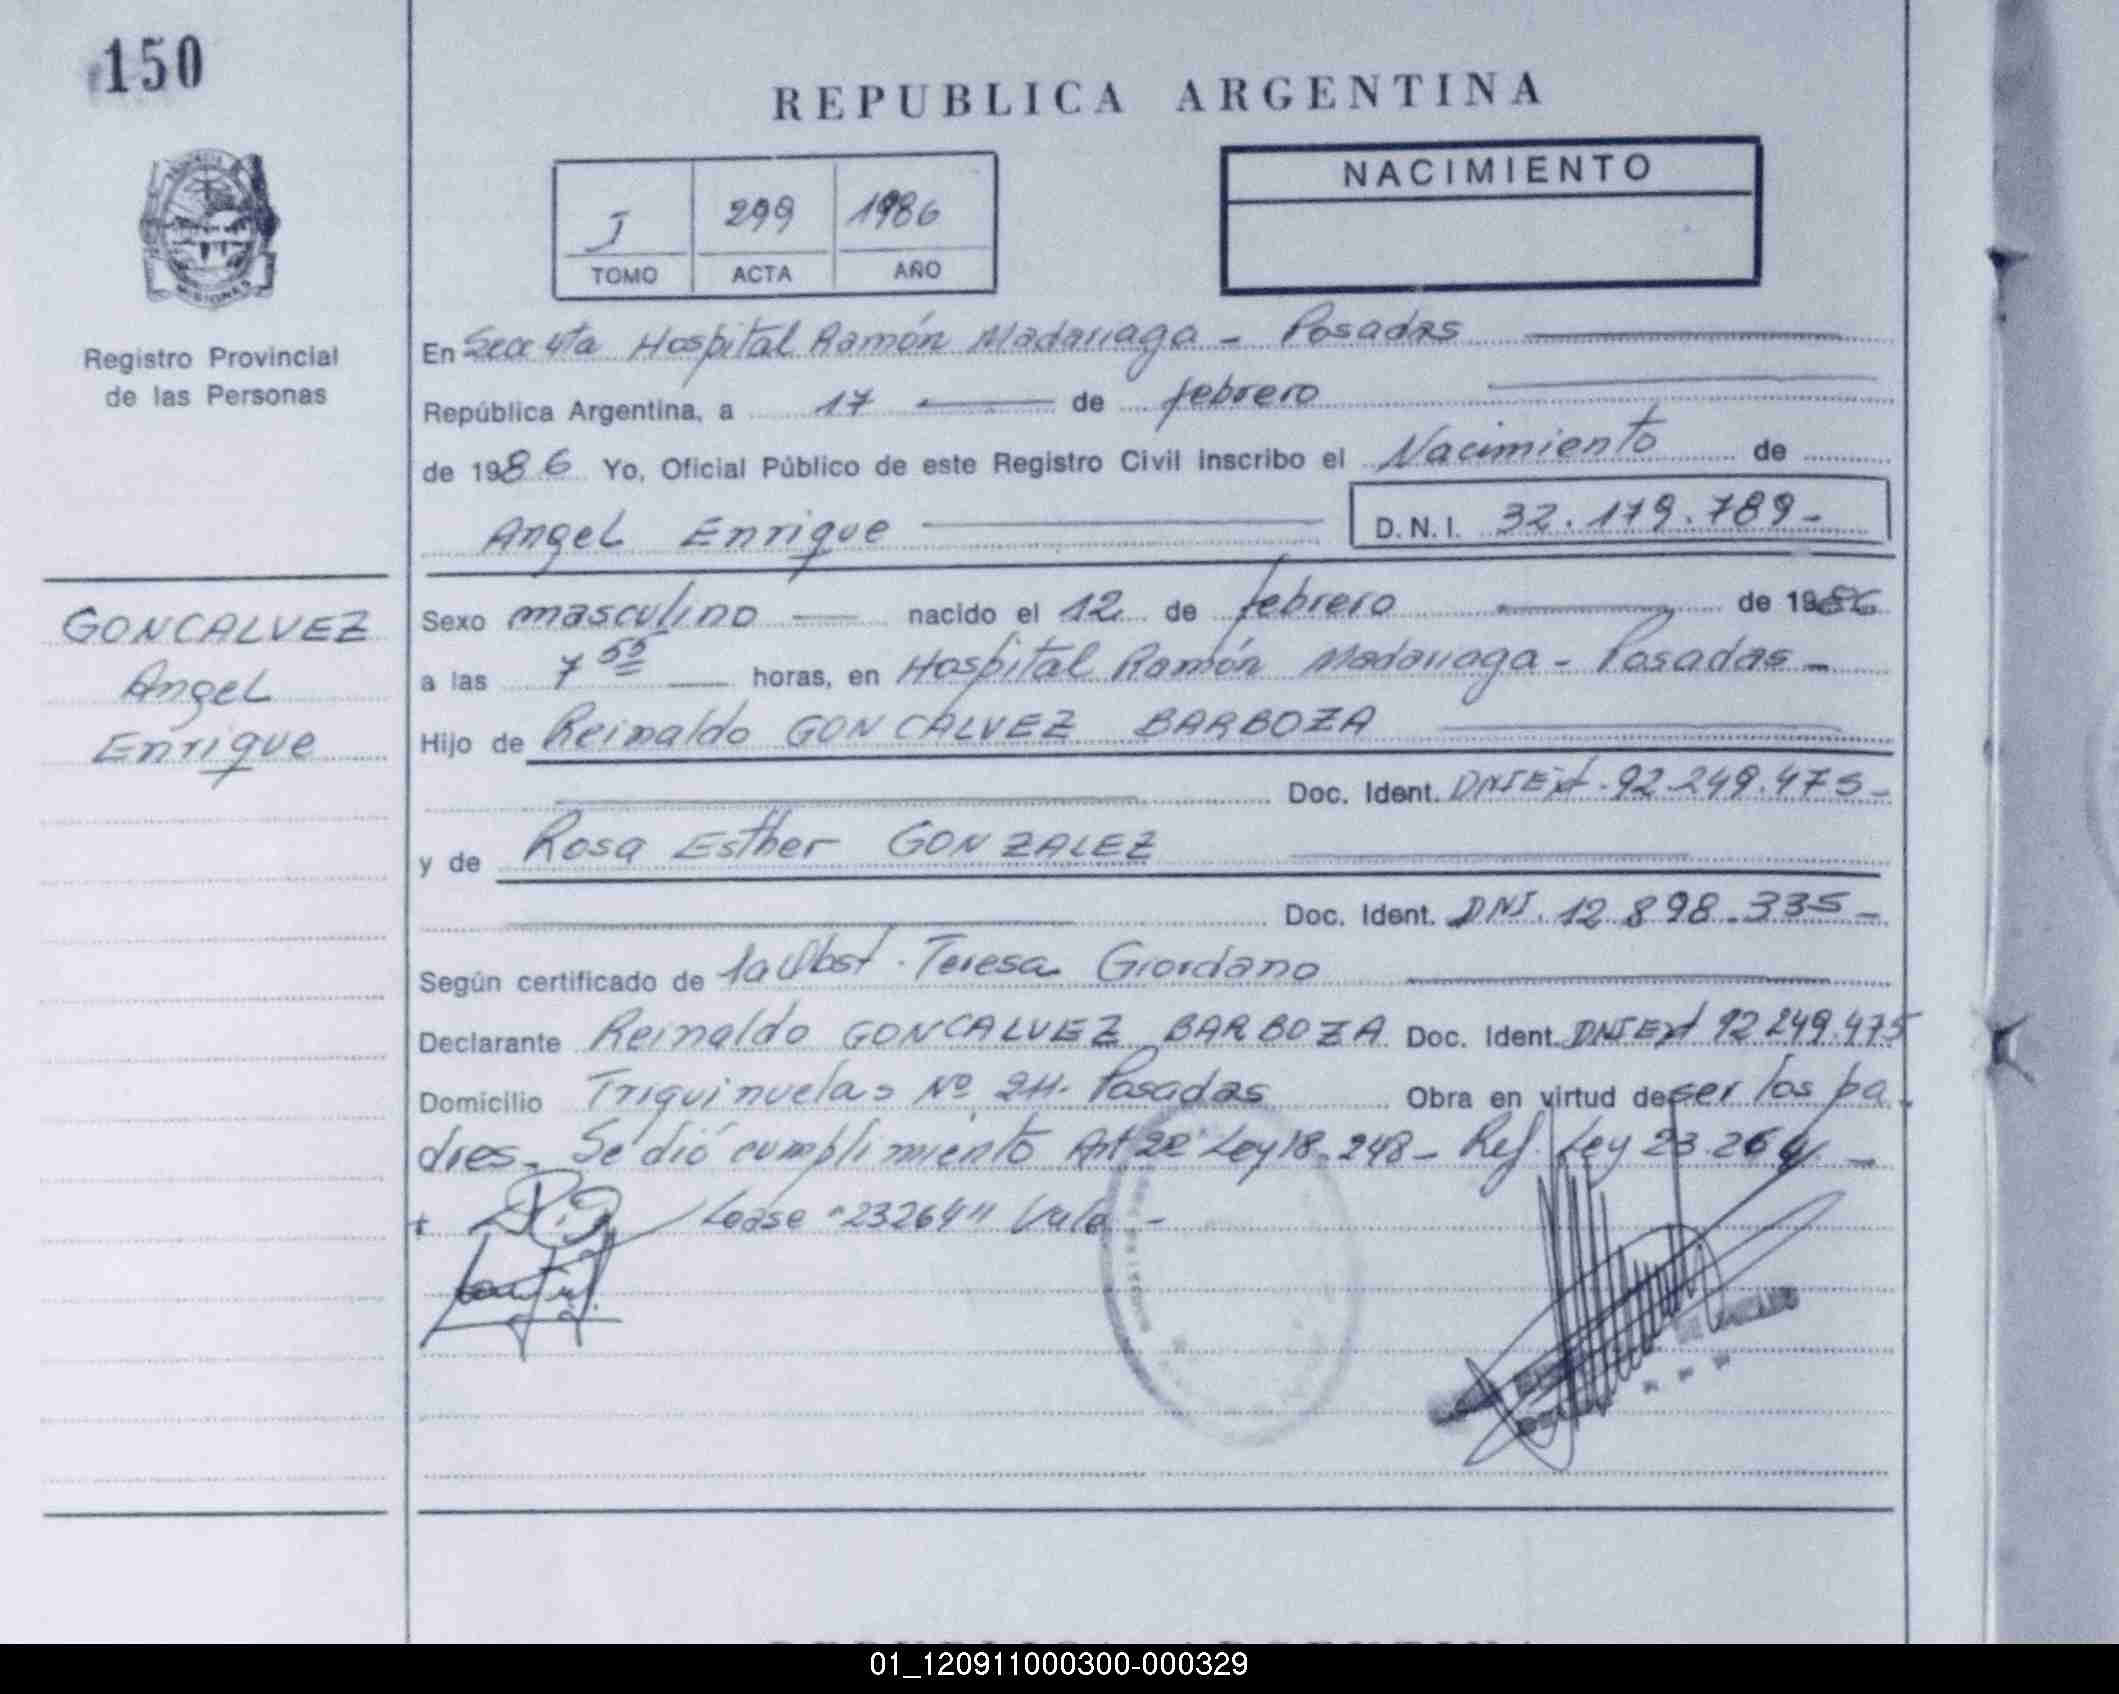 150
REPUBLICA ARGENTINA
NACIMIENTO
I 299 1986
TOMO ACTA AÑO
MISIONES
Registro Provincial
de las Personas
En Secc 4ta Hospital Ramón Madariaga - Posadas
República Argentina, a 17 de febrero
de 1986 Yo, Oficial Público de este Registro Civil inscribo el Nacimiento de
Angel Enrique D.N.I. 32.179.789-
GONCALVEZ
Angel
Enrique
Sexo masculino nacido el 12 de febrero de 1986
a las 7 55 horas, en Hospital Ramón Madariaga - Posadas -
Hijo de Reinaldo GONCALVEZ BARBOZA
Doc. Ident. DNI Ext. 92.249.475-
y de Rosa Esther GONZALEZ
Doc. Ident. DNI. 12.898.335-
Según certificado de la Obst. Teresa Giordano
Declarante Reinaldo GONCALVEZ BARBOZA Doc. Ident. DNI Ext 92.249.475
Domicilio Triquinuelas Nº 24. Posadas Obra en virtud de ser los pa
dres. Se dió cumplimiento Art 2º Ley 18.248 - Ref. Ley 23.264 -
Léase "23264" Vale -
01_120911000300-000329